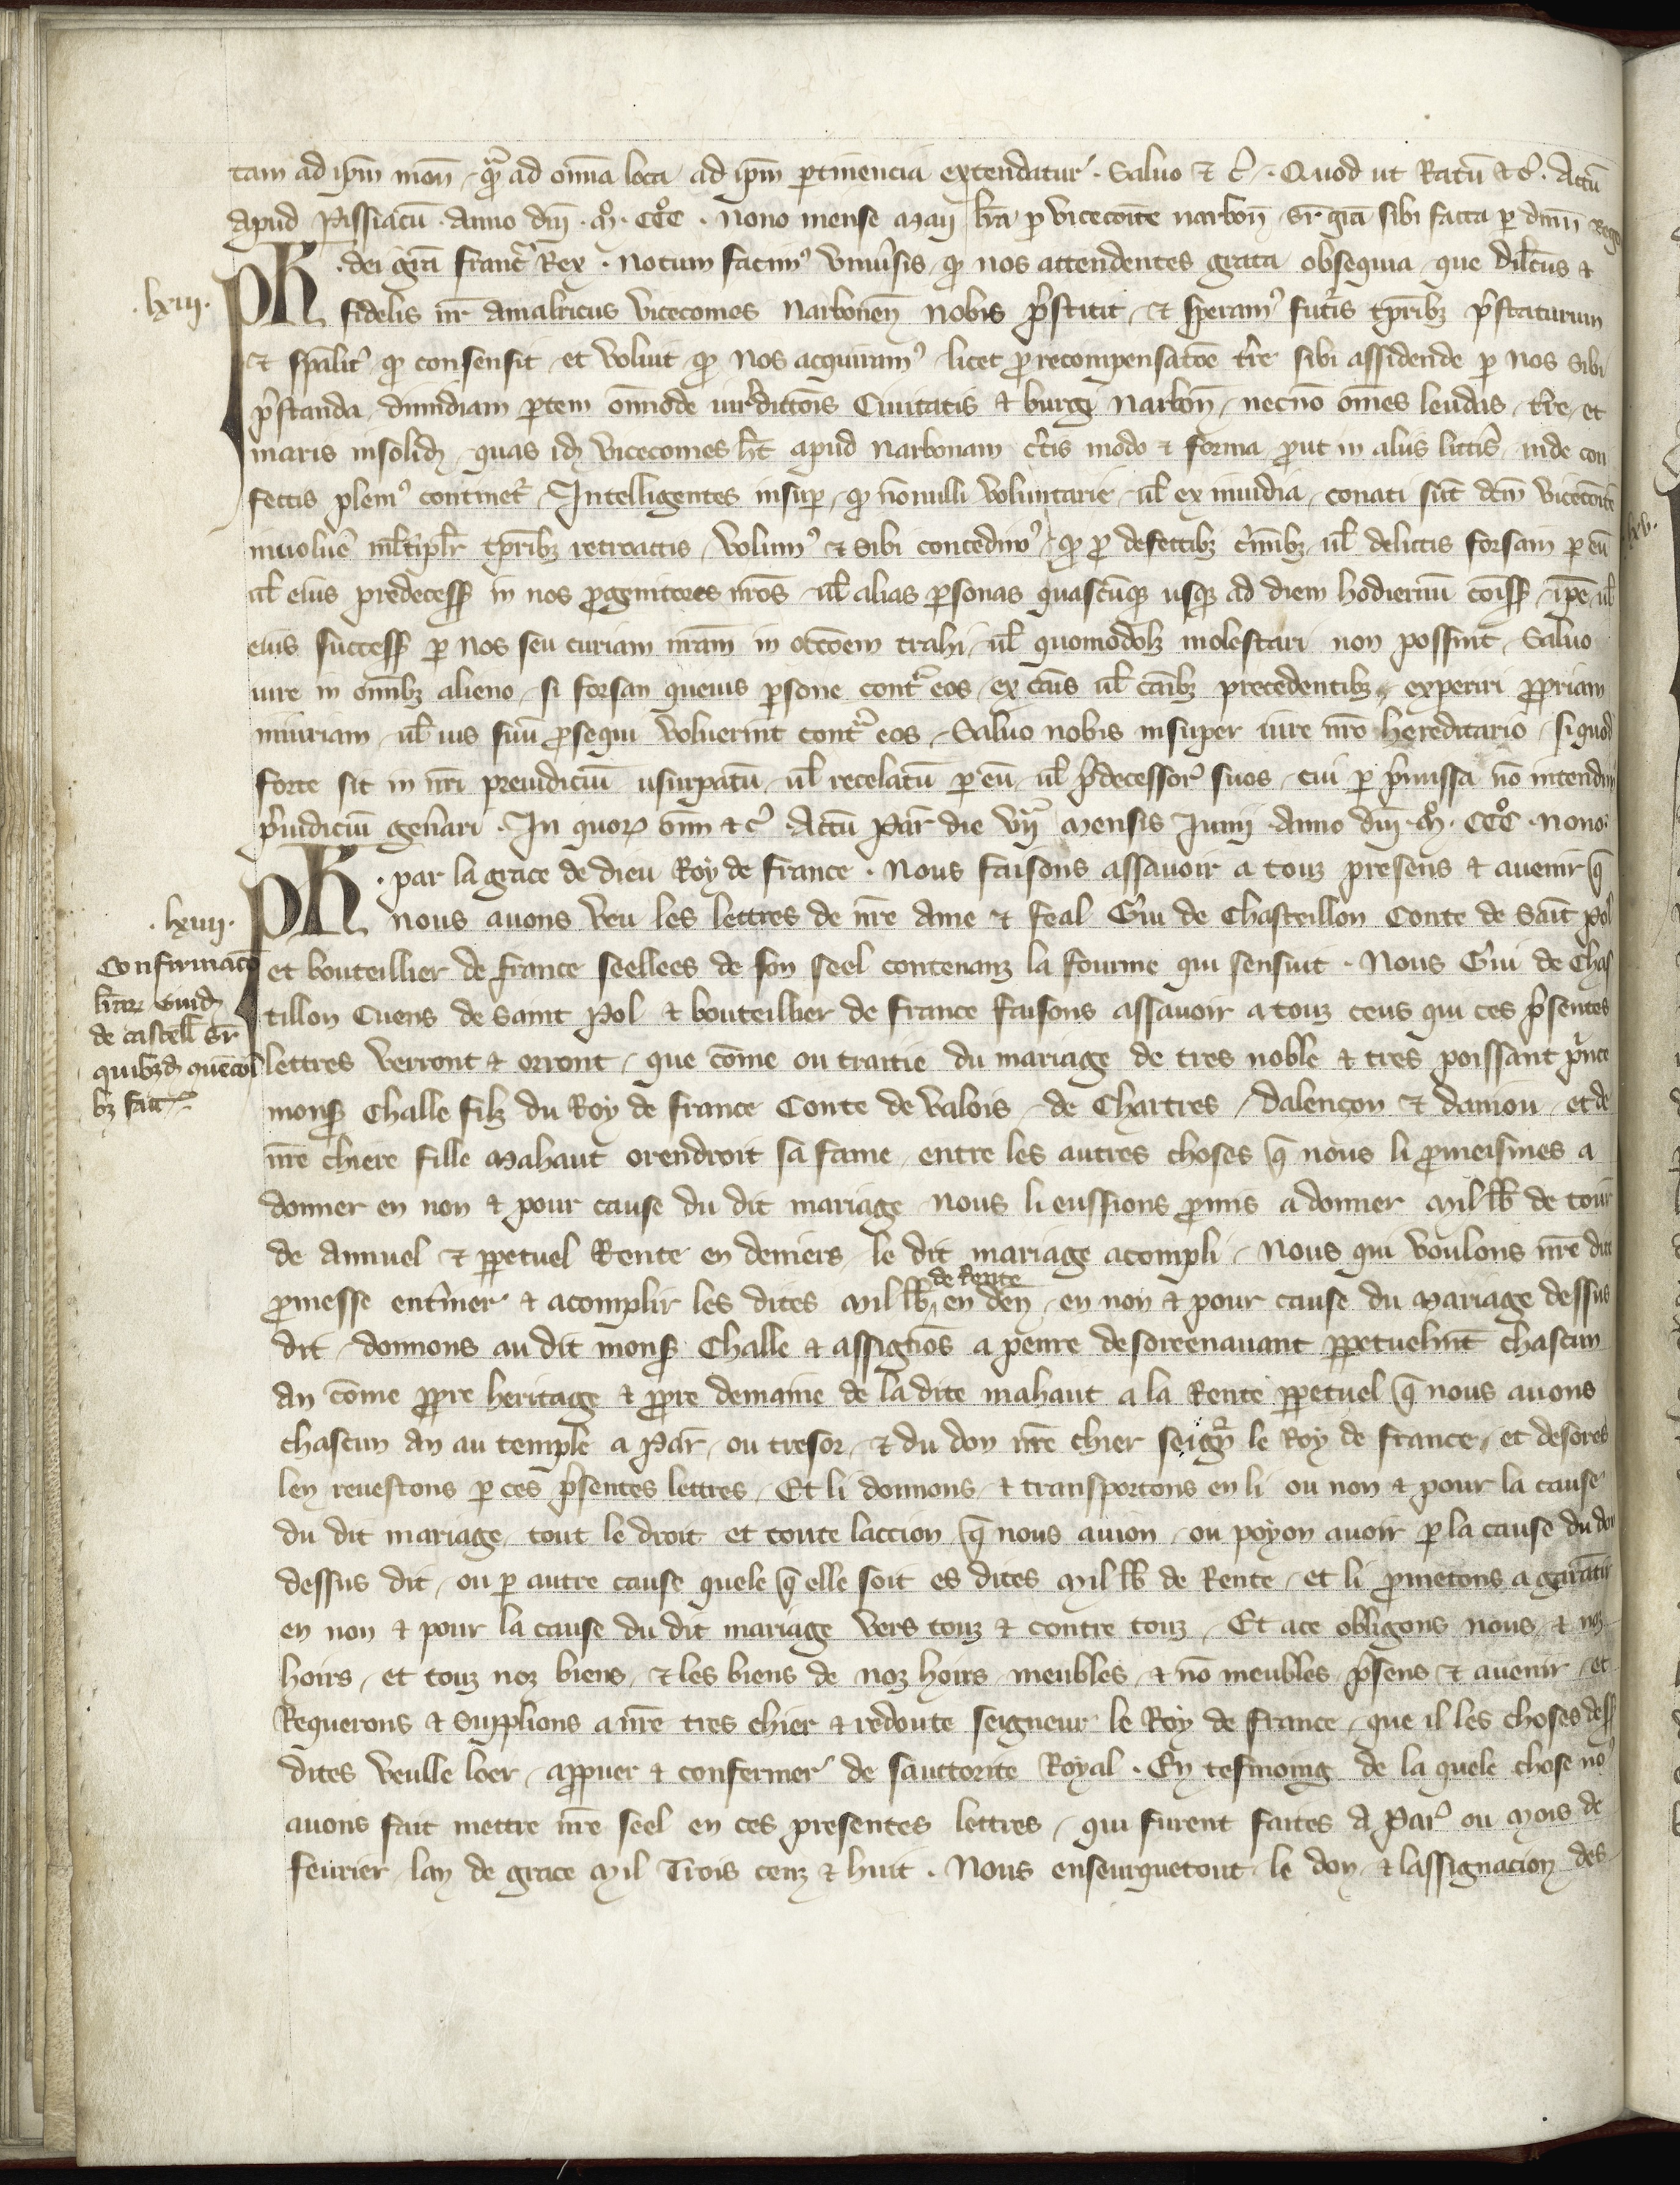 tam ad ip̄m mon̄ / qᷓ ad om̄ia loca ad ip̄m ꝑtinencia extendatur . Saluo ⁊ c̄ . Quod ut Ratū ⁊ c̄ . Actū
apud Passiacū . Anno dn̄i . M̊ . CC̊C . Nono mense Maij lr̄a ꝑ vicecoitē narbon̄ . sr̄ gr̄a sibi facta per dn̄m Regē
.lxiij.
Ph̄ . dei gr̄a franc̄ Rex . Notum facimꝰ vniu͛sis / ꝙ nos attendentes grata obsequia / que dil̄cus ⁊
fidelis nr̄ Amalricus vicecomes Narbonen̄ nobis p͛stitit / ⁊ speramꝰ fut͛is tp̄ribꝫ p͛staturum
⁊ sp̄alit͛ ꝙ consensit / et voluit ꝙ nos acquiramꝰ / licet ꝓ recompensatōe t͛re sibi assidende ꝑ nos sibi
p͛standa / dimidiam ꝑtem om̄ode iur͛dictōis Ciuitatis ⁊ burgi Narbon̄ / necnō om̄es leudas / t͛re / et
maris insolidꝫ / quas idꝫ vicecomes h̄t apud Narbonam c͛tis modo ⁊ forma / ꝓut in aliis litt͛is inde con
fectis plenꝰ continet͛ / Intelligentes insuꝑ / ꝙ nōnulli voluntarie / ul̄ ex inuidia / conati sūt dc̄m vicecoitē
inuoluē ml̄tiplr̄ tp̄ribꝫ retroactis / volumꝰ ⁊ sibi concedimꝰ / ꝙ ꝓ defectibꝫ c͛minibꝫ ul̄ delictis forsam ꝑ eū
ul̄ eius predecess̄ in nos ꝓgenitores nr̄os / ul̄ alias ꝑsonas quascūqꝫ usqꝫ ad diem hodiernū cōiss̄ / ip̄e ul̄
eius success̄ ꝑ nos seu curiam nr̄am in occōem trahi / ul̄ quomodolꝫ molestari non possint / Saluo
iure in om̄ibꝫ alieno / si forsan queuis ꝑsone contᷓ eos / ex causis ul̄ cāibꝫ precedentibꝫ / experiri ꝓpriam
iniuriam / ul̄ ius suū ꝓsequi voluerint contᷓ eos / Saluo nobis insuper iure nr̄o hereditario / si quod
forte sit in nr̄i preiudiciū usurpatū / ul̄ recelatū ꝑ eū ul̄ p͛decessor͛ suos / cui ꝑ p͛missa nō intendimꝰ
p͛iudiciū gen͛ari . In quorꝫ om̄ ⁊ c̄ . Actū Par̄ die vijᷓ mensis Junij . Anno dn̄i . M̊ . CC̊C . Nono .
.lxiiij.
Ph̄ . par la grace de dieu Roy de france . Nous faisons assauoir a touz presens ⁊ auenir q̄
nous auons veu les lettres de nr̄e Ame ⁊ feal Gui de Chasteillon Conte de Saīt Pol
Confirmacō
lr̄arꝫ Guidꝫ
de castell̄ sr̄
quibꝫdꝫ
bꝫ fact͛
et bouteillier de france seellees de son seel contenanz la fourme qui sensuit . Nous Gui de Chas
tillon Cuens de Saint Pol ⁊ bouteillier de france faisons assauoir a touz ceus qui ces p͛sentes
lettres verront ⁊ orront / que cōme ou traitie du mariage de tres noble ⁊ tres poissant p͛nce
mons̄ Challe filz du Roy de france Conte de Valois / de Chartres / Dalençon ⁊ Daniou / et de
nr̄e chiere fille Mahaut orendroit sa fame / entre les autres choses q̄ nous li ꝓmeismes a
donner en non ⁊ pour cause du dit mariage nous li eussions ꝓmis a donner Mil lb̄ de tour
de annuel ⁊ ꝑpetuel Rente en deniers / le dit mariage acompli / Nous qui voulons nr̄e dite
ꝓmesse ent͛iner ⁊ acomplir les dites Mil lb̄ de Rente en den̄ / en non ⁊ pour cause du Mariage dessus
dit / donnons au dit mons̄ Challe ⁊ assignōs a penre desoreenauant ꝑpetuelmt̄ chascun
an cōme ꝓpre heritage ⁊ ꝓpre demaine de la dite mahaut a la Rente ꝑpetuel q̄ nous auons
chascun an au temple a Par̄ / ou tresor / ⁊ du don nr̄e chier seignᷓ le Roy de france / et desores
len reuestons ꝑ ces p͛sentes lettres / Et li donnons / ⁊ transportons en li ou non ⁊ pour la cause
du dit mariage / tout le droit et toute laccion q̄ nous auion / ou poyon auoir ꝑ la cause du don
dessus dit / ou ꝑ autre cause quele q̄ elle soit es dites Mil lb̄ de Rente / et li ꝓmetons a garātir
en non ⁊ pour la cause du dit mariage vers touz ⁊ contre touz / Et ace obligons nous / ⁊ noz
hoirs / et touz noz biens / ⁊ les biens de noz hoirs meubles / ⁊ nō meubles p͛sens ⁊ auenir / et
Requerons ⁊ Supplions a nr̄e tres chier ⁊ redoute seigneur le Roy de france / que il les choses dess̄
dites veulle loer / appuer ⁊ confermer de sauctorite Royal . En tesmoing de la quele chose noꝰ
auons fait mettre nr̄e seel en ces presentes lettres / qui furent faites A Par͛ ou Mois de
feurier / lan de grace Mil Trois cenz ⁊ huit . Nous enseurquetout le don / ⁊ lassignacion des
.lxv.